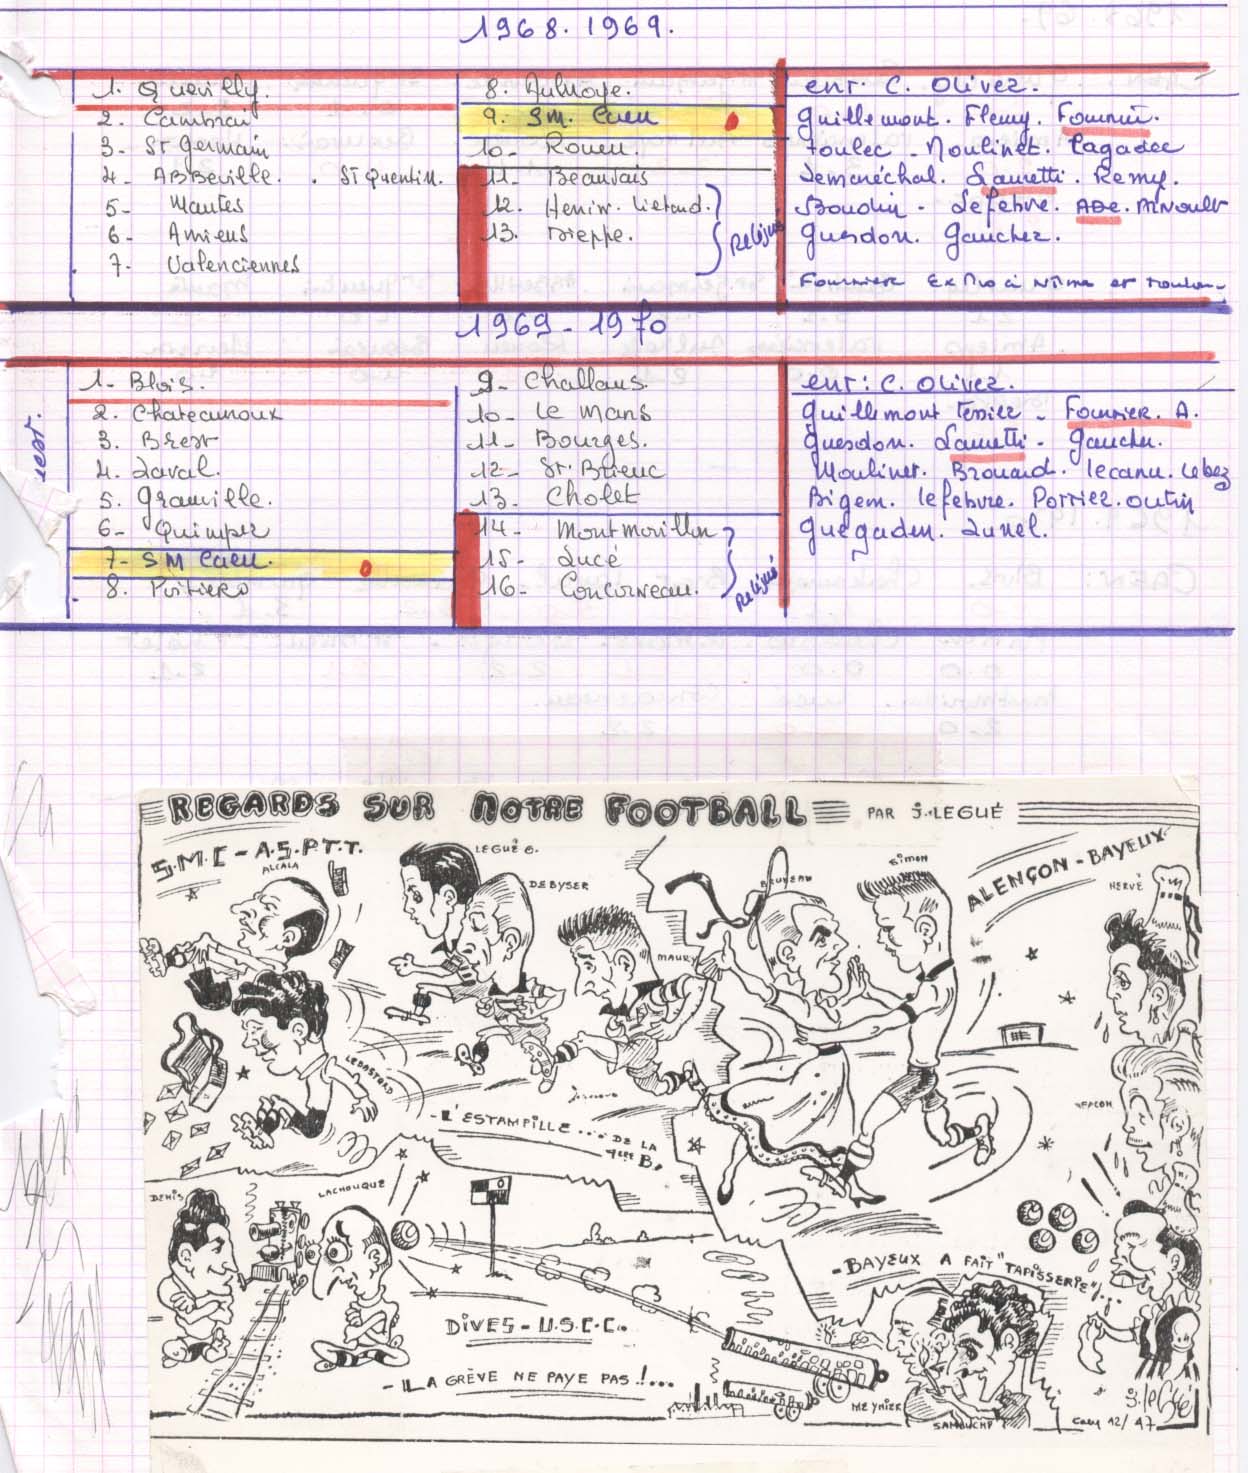 1968.1969.
1. Quevilly.
2. Cambrai
3- St Germain
4- ABBEville. . ST Quentin.
5- Mantes
6- Amiens
7- Valenciennes
8. Aulnoye.
9. SM. Caen
10- Rouen.
11- Beauvais
12. Henin. Lietard.
13. Dieppe.
Relégué
ent. C. Olivez.
Guillemont. Fleury. Fournier.
Toulec - Moulinet. Lagadec
Lemaréchal. Lauretti. Remy.
Boudin - Lefebvre. ADE. Arnoult
Guesdon. Gaucher.
Fournier Ex Pro à Nîmes et Toulon-
1969-1970
est.
1- Blois.
2. Chateauroux
3. Brest
4. Laval.
5. Granville.
6- Quimper
7- SM Caen.
8. Poitiers
9- Challans.
10- Le Mans
11- Bourges.
12- St. Brieuc
13- Cholet
14- Montmorillon
15- Lucé
16- Concarneau.
Relégué
ent: C. Olivez.
Guillemont Tessier - Fournier. A.
Guesdon. Lauretti - Gaucher.
Moulinet. Brouard. Lecanu. Lebez
Bigem. Lefebvre. Porriez. Outin
Guegaden. Lunel.
REGARDS SUR NOTRE FOOTBALL PAR J. LEGUÉ
S.M.C - A.S.P.T.T.
ALCALA
LEGUÉ G.
DEBYSER
MAURY
BRUNEAU
SIMON
ALENÇON - BAYEUX
HERVÉ
LEBASTARD
- L'ESTAMPILLE... DE LA 1ère B.
FACON
DENIS
LACHOUQUE
DIVES - U.S.C.C.
- LA GRÈVE NE PAYE PAS !...
- BAYEUX A FAIT "TAPISSERIE"!..
MEYNIER
SAMBUCHP
J. leGué
Caen 12/47